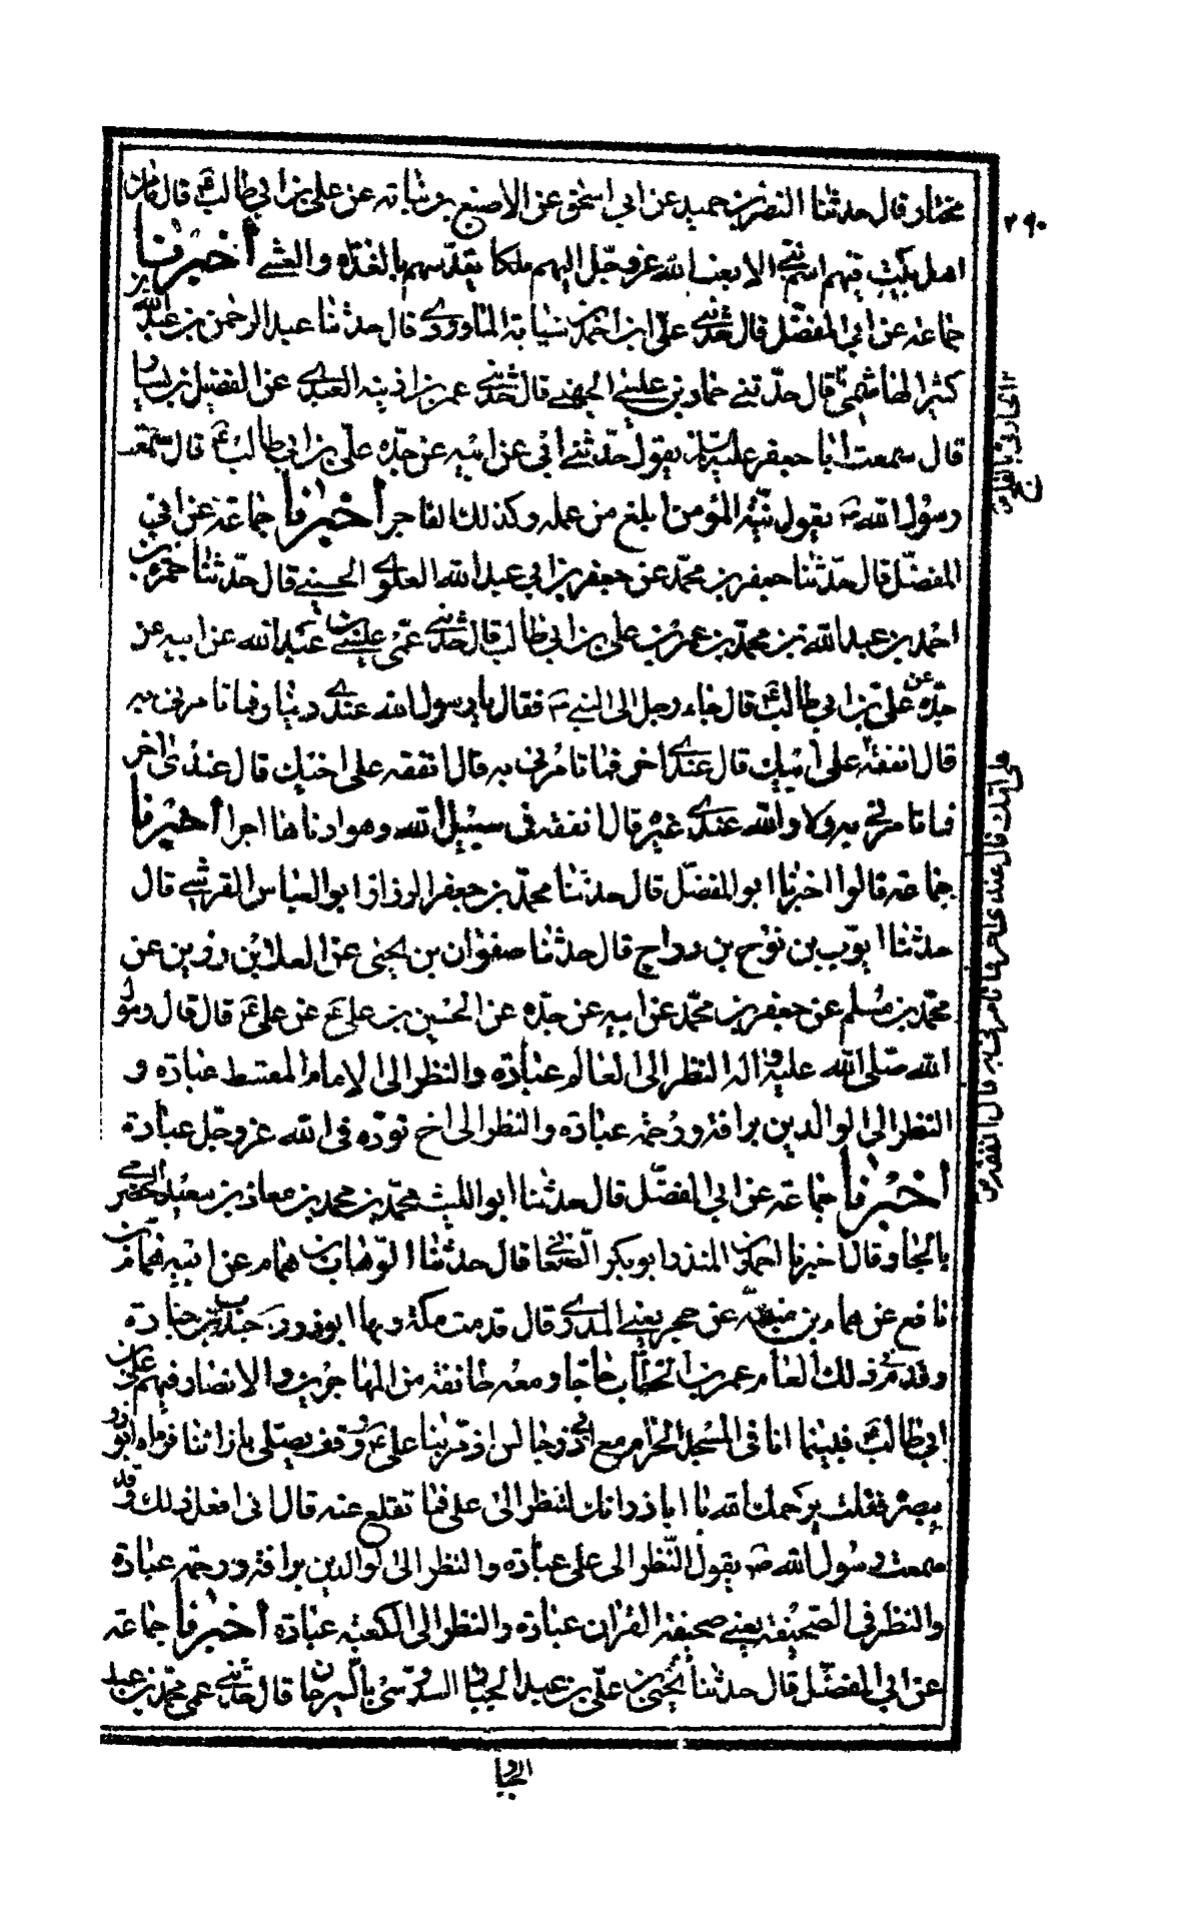 مختار قال حدثنا النضر بن حميد عن ابي اسحق عن الاصبغ بن نباته عن علي بن ابي طالب ع قال ما من
اهل بيت فيهم اسم نبي الا بعث الله عز وجل اليهم ملكا يقدسهم بالغداه والعشي أخبرنا
جماعة عن ابي المفضل قال حدثني علي بن احمد بن سيابة الماوردي قال حدثنا عبد الرحمن بن عبد الله بن
كثير الهاشمي قال حدثني حماد بن عيسى الجهني قال حدثني عمر بن اذينه العبدي عن الفضيل بن يسار
قال سمعت ابا جعفر عليه السلام يقول حدثني أبي عن ابيه عن جده علي بن ابي طالب ع قال سمعت
رسول الله ص يقول نيته المؤمن ابلغ من عمله وكذلك الفاجر أخبرنا جماعة عن ابي
المفضل قال حدثنا جعفر بن محمد عن جعفر بن ابي عبد الله العلوي الحسيني قال حدثنا حمزة بن
احمد بن عبد الله بن محمد بن عمر بن علي بن ابي طالب قال حدثني عمي عيسى بن عبد الله عن ابيه عن
جده عن علي بن ابي طالب ع قال جاء رجل الى النبي ص فقال يا رسول الله عندي دينار فما تامرني به
قال انفقه على امك قال عندي اخر فما تامرني به قال انفقه على اخيك قال عندي اخر
فما تامرني به ولا والله عندي غيره قال انفقه في سبيل الله وهو ادناها اجرا أخبرنا
جماعة قالوا اخبرنا ابو المفضل قال حدثنا محمد بن جعفر الرزاز ابو العباس القرشي قال
حدثنا ايوب بن نوح بن دراج قال حدثنا صفوان بن يحيى عن العلا بن رزين عن
محمد بن مسلم عن جعفر بن محمد عن ابيه عن جده عن الحسين بن علي ع عن علي ع قال قال رسول
الله صلى الله عليه واله النظر الى العالم عبادة والنظر الى الامام المقسط عبادة و
النظر الى الوالدين برافة ورحمة عبادة والنظر الى اخ توده في الله عز وجل عبادة
أخبرنا جماعة عن ابي المفضل قال حدثنا ابو الليث محمد بن محمد بن معاذ بن سعيد الحضرمي
بالجار وقال اخبرنا احمد بن المنذر ابو بكر الصنعاني قال حدثنا الوهاب بن همام عن ابيه همام بن
نافع عن همام بن منبه عن حجر يعني المدري قال قدمت مكة وبها ابو ذر جندب بن جنادة
وقدم في ذلك العام عمر بن الخطاب حاجا ومعه طائفة من المهاجرين والانصار فيهم علي بن
ابي طالب ع فبينما انا في المسجد الحرام مع ابي ذر جالس اذ مر بنا علي ع ووقف يصلي بازائنا فرماه ابو ذر
ببصره فقلت يرحمك الله يا ابا ذر انك لتنظر الى علي فما تقلع عنه قال اني افعل ذلك وقد
سمعت رسول الله ص يقول النظر الى علي عبادة والنظر الى الوالدين برافة ورحمة عبادة
والنظر في الصحيفة يعني صحيفة القران عبادة والنظر الى الكعبة عبادة أخبرنا جماعة
عن ابي المفضل قال حدثنا يحيى بن علي بن عبد الجبار السدوسي بالسيرجان قال حدثني عمي محمد بن عبد
الجبار
٢٩٠